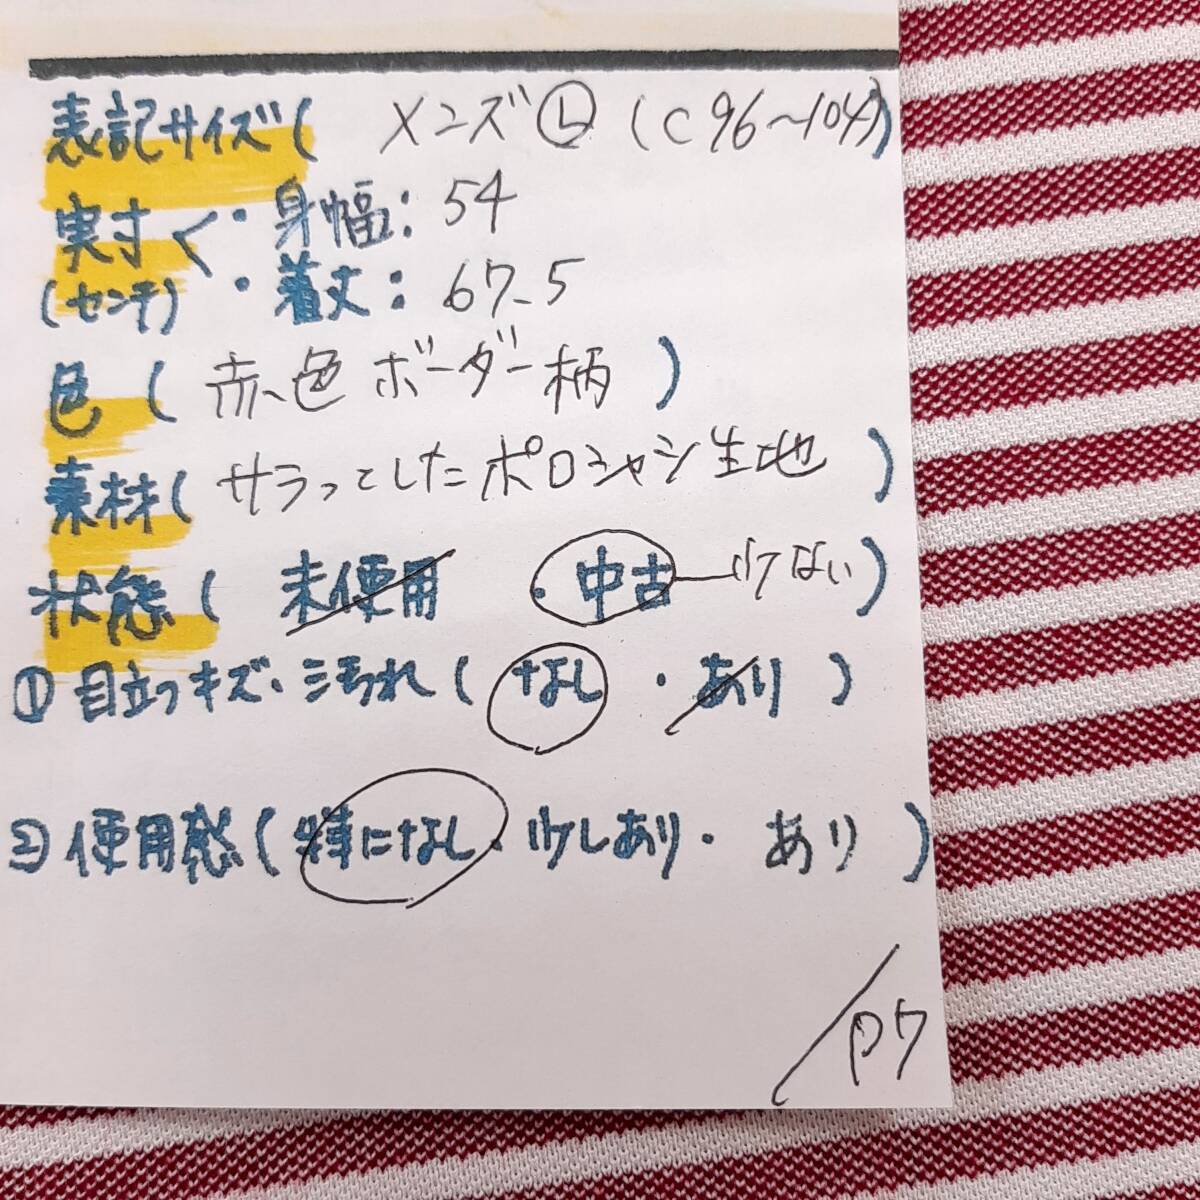 表記サイズ( メンズ Ⓛ (C96～104))
実寸く・身幅: 54
(センチ) ・着丈: 67.5
色( 赤色 ボーダー柄 )
素材( サラっとしたポロシャツ生地 )
状態( 未使用 ・中古－少ない )
①目立つキズ・汚れ( なし ・ あり )
②使用感( 特になし・少しあり・ あり )
/P7